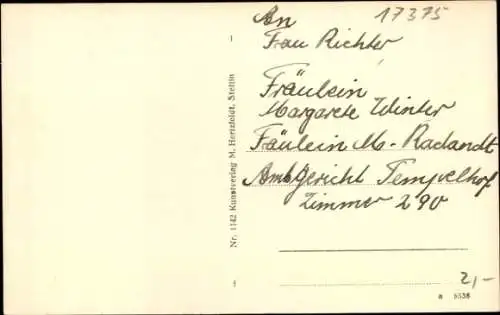 An
17375
Frau Richter
Fräulein
Margarete Winter
Fräulein M. Radandt
Amtsgericht Tempelhof
Zimmer 290
Nr. 1142 Kunstverlag M. Hertzfeldt, Stettin
2,-
a 5538